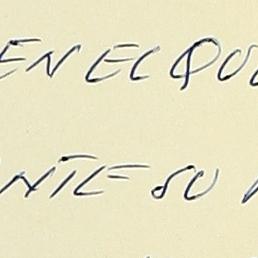 EN EL QUE
NTE SU